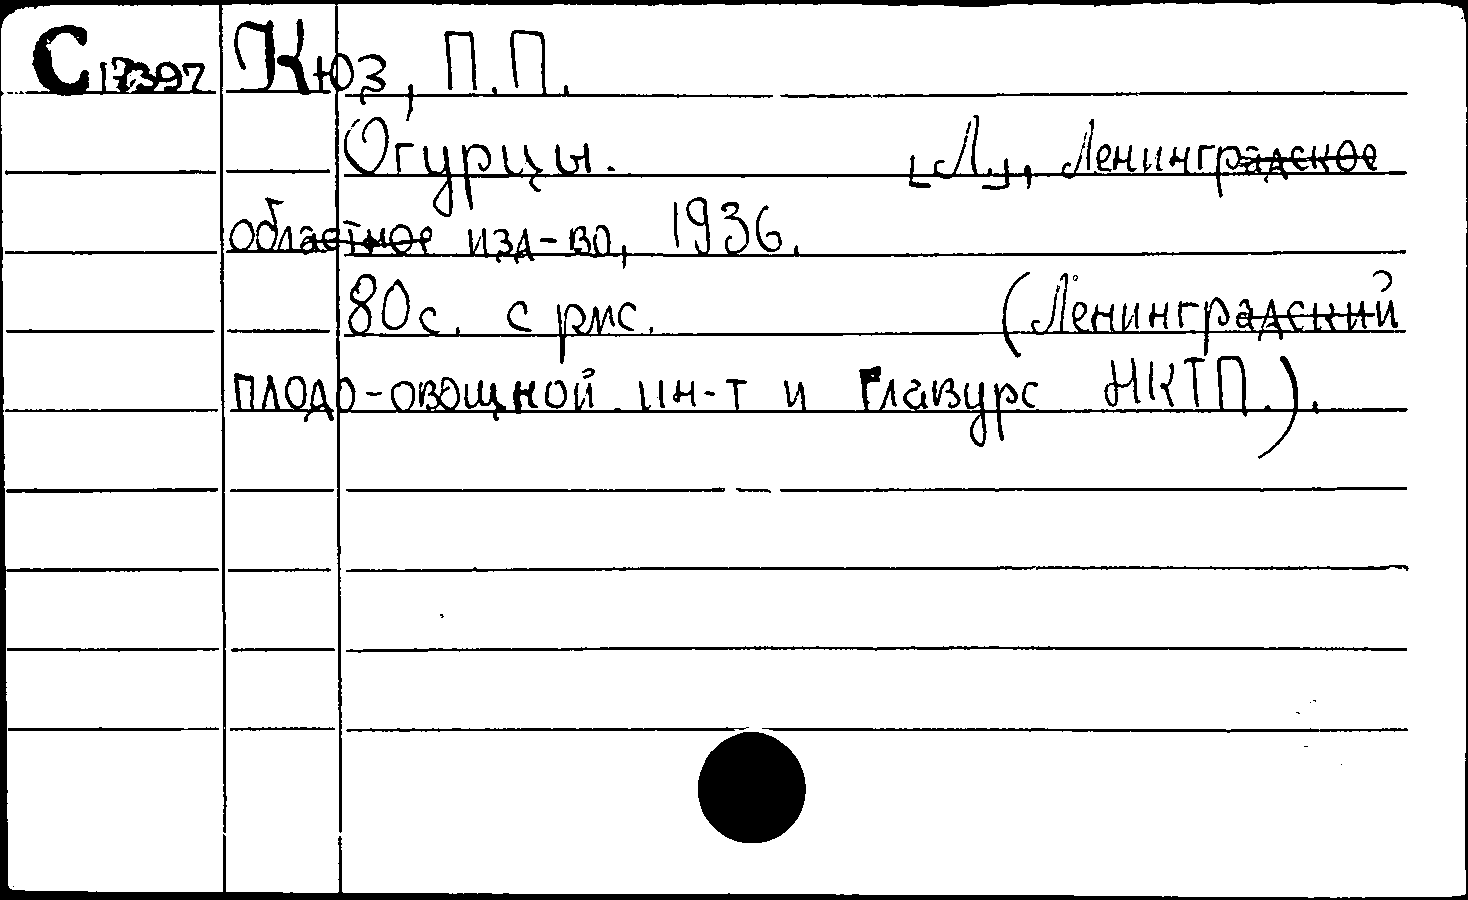 С17397 Кюз, П.П.
Огурцы. [Л.], Ленинградское
областное изд-во, 1936.
80с. с рис. (Ленинградский
плодо-овощной ин-т и Главурс НКТП.).